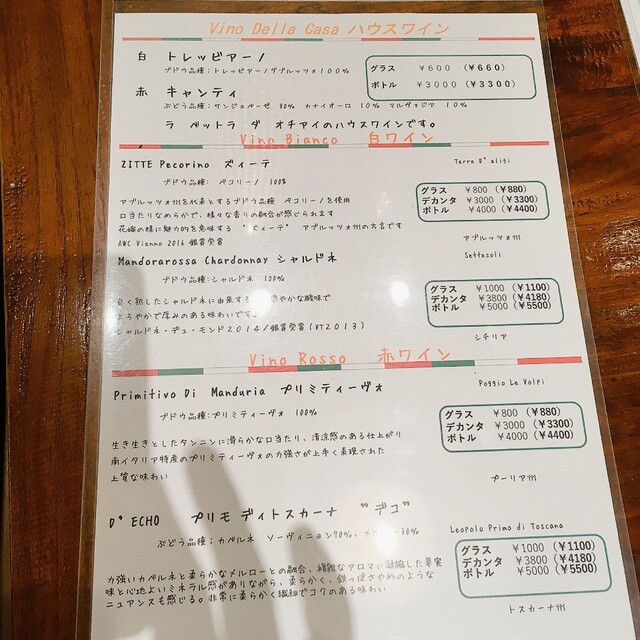 Vino Della Casa ハウスワイン
白 トレッビアーノ
ブドウ品種:トレッビアーノダブルッツォ100%
グラス ¥600 (¥660)
ボトル ¥3000 (¥3300)
赤 キャンティ
ぶどう品種:サンジョベーゼ 80% カナイオーロ 10% マルヴァジア 10%
ラ ベットラ ダ オチアイのハウスワインです。
Vino Bianco 白ワイン
ZITTE Pecorino ズィーテ
Terra D'aligi
ブドウ品種: ペコリーノ 100%
アブルッツォ州を代表とするブドウ品種 ペコリーノを使用
口当たりなめらかで、様々な香りの融合が感じられます
花嫁の様に魅力的を意味する "ズィーテ" アブルッツォ州の方言です
AWC Vienna 2016 銀賞受賞
グラス ¥800 (¥880)
デカンタ ¥3000 (¥3300)
ボトル ¥4000 (¥4400)
アブルッツォ州
Mandorarossa Chardonnay シャルドネ
Settesoli
ブドウ品種:シャルドネ 100%
良く熟したシャルドネに由来する やかな酸味で
まろやかで厚みのある味わいです。
シャルドネ・デュ・モンド2014/銀賞受賞(VT2013)
グラス ¥1000 (¥1100)
デカンタ ¥3800 (¥4180)
ボトル ¥5000 (¥5500)
シチリア
Vino Rosso 赤ワイン
Primitivo Di Manduria プリミティーヴォ
Poggio Le Volpi
ブドウ品種:プリミティーヴォ 100%
生き生きとしたタンニンに滑らかな口当たり、清涼感のある仕上がり
南イタリア特産のプリミティーヴォの力強さが上手く表現された
上質な味わい
グラス ¥800 (¥880)
デカンタ ¥3000 (¥3300)
ボトル ¥4000 (¥4400)
プーリア州
D'ECHO プリモ ディトスカーナ "デコ"
Leopolo Primo di Toscana
ぶどう品種:カベルネ ソーヴィニョン70%、メルロー30%
力強いカベルネと柔らかなメルローとの融合、複雑なアロマに凝縮した果実
味と心地よいミネラル感がありながら、柔らかく、鉄っぽさや杉のような
ニュアンスも感じる。非常に柔らかく繊細でコクのある味わい
グラス ¥1000 (¥1100)
デカンタ ¥3800 (¥4180)
ボトル ¥5000 (¥5500)
トスカーナ州